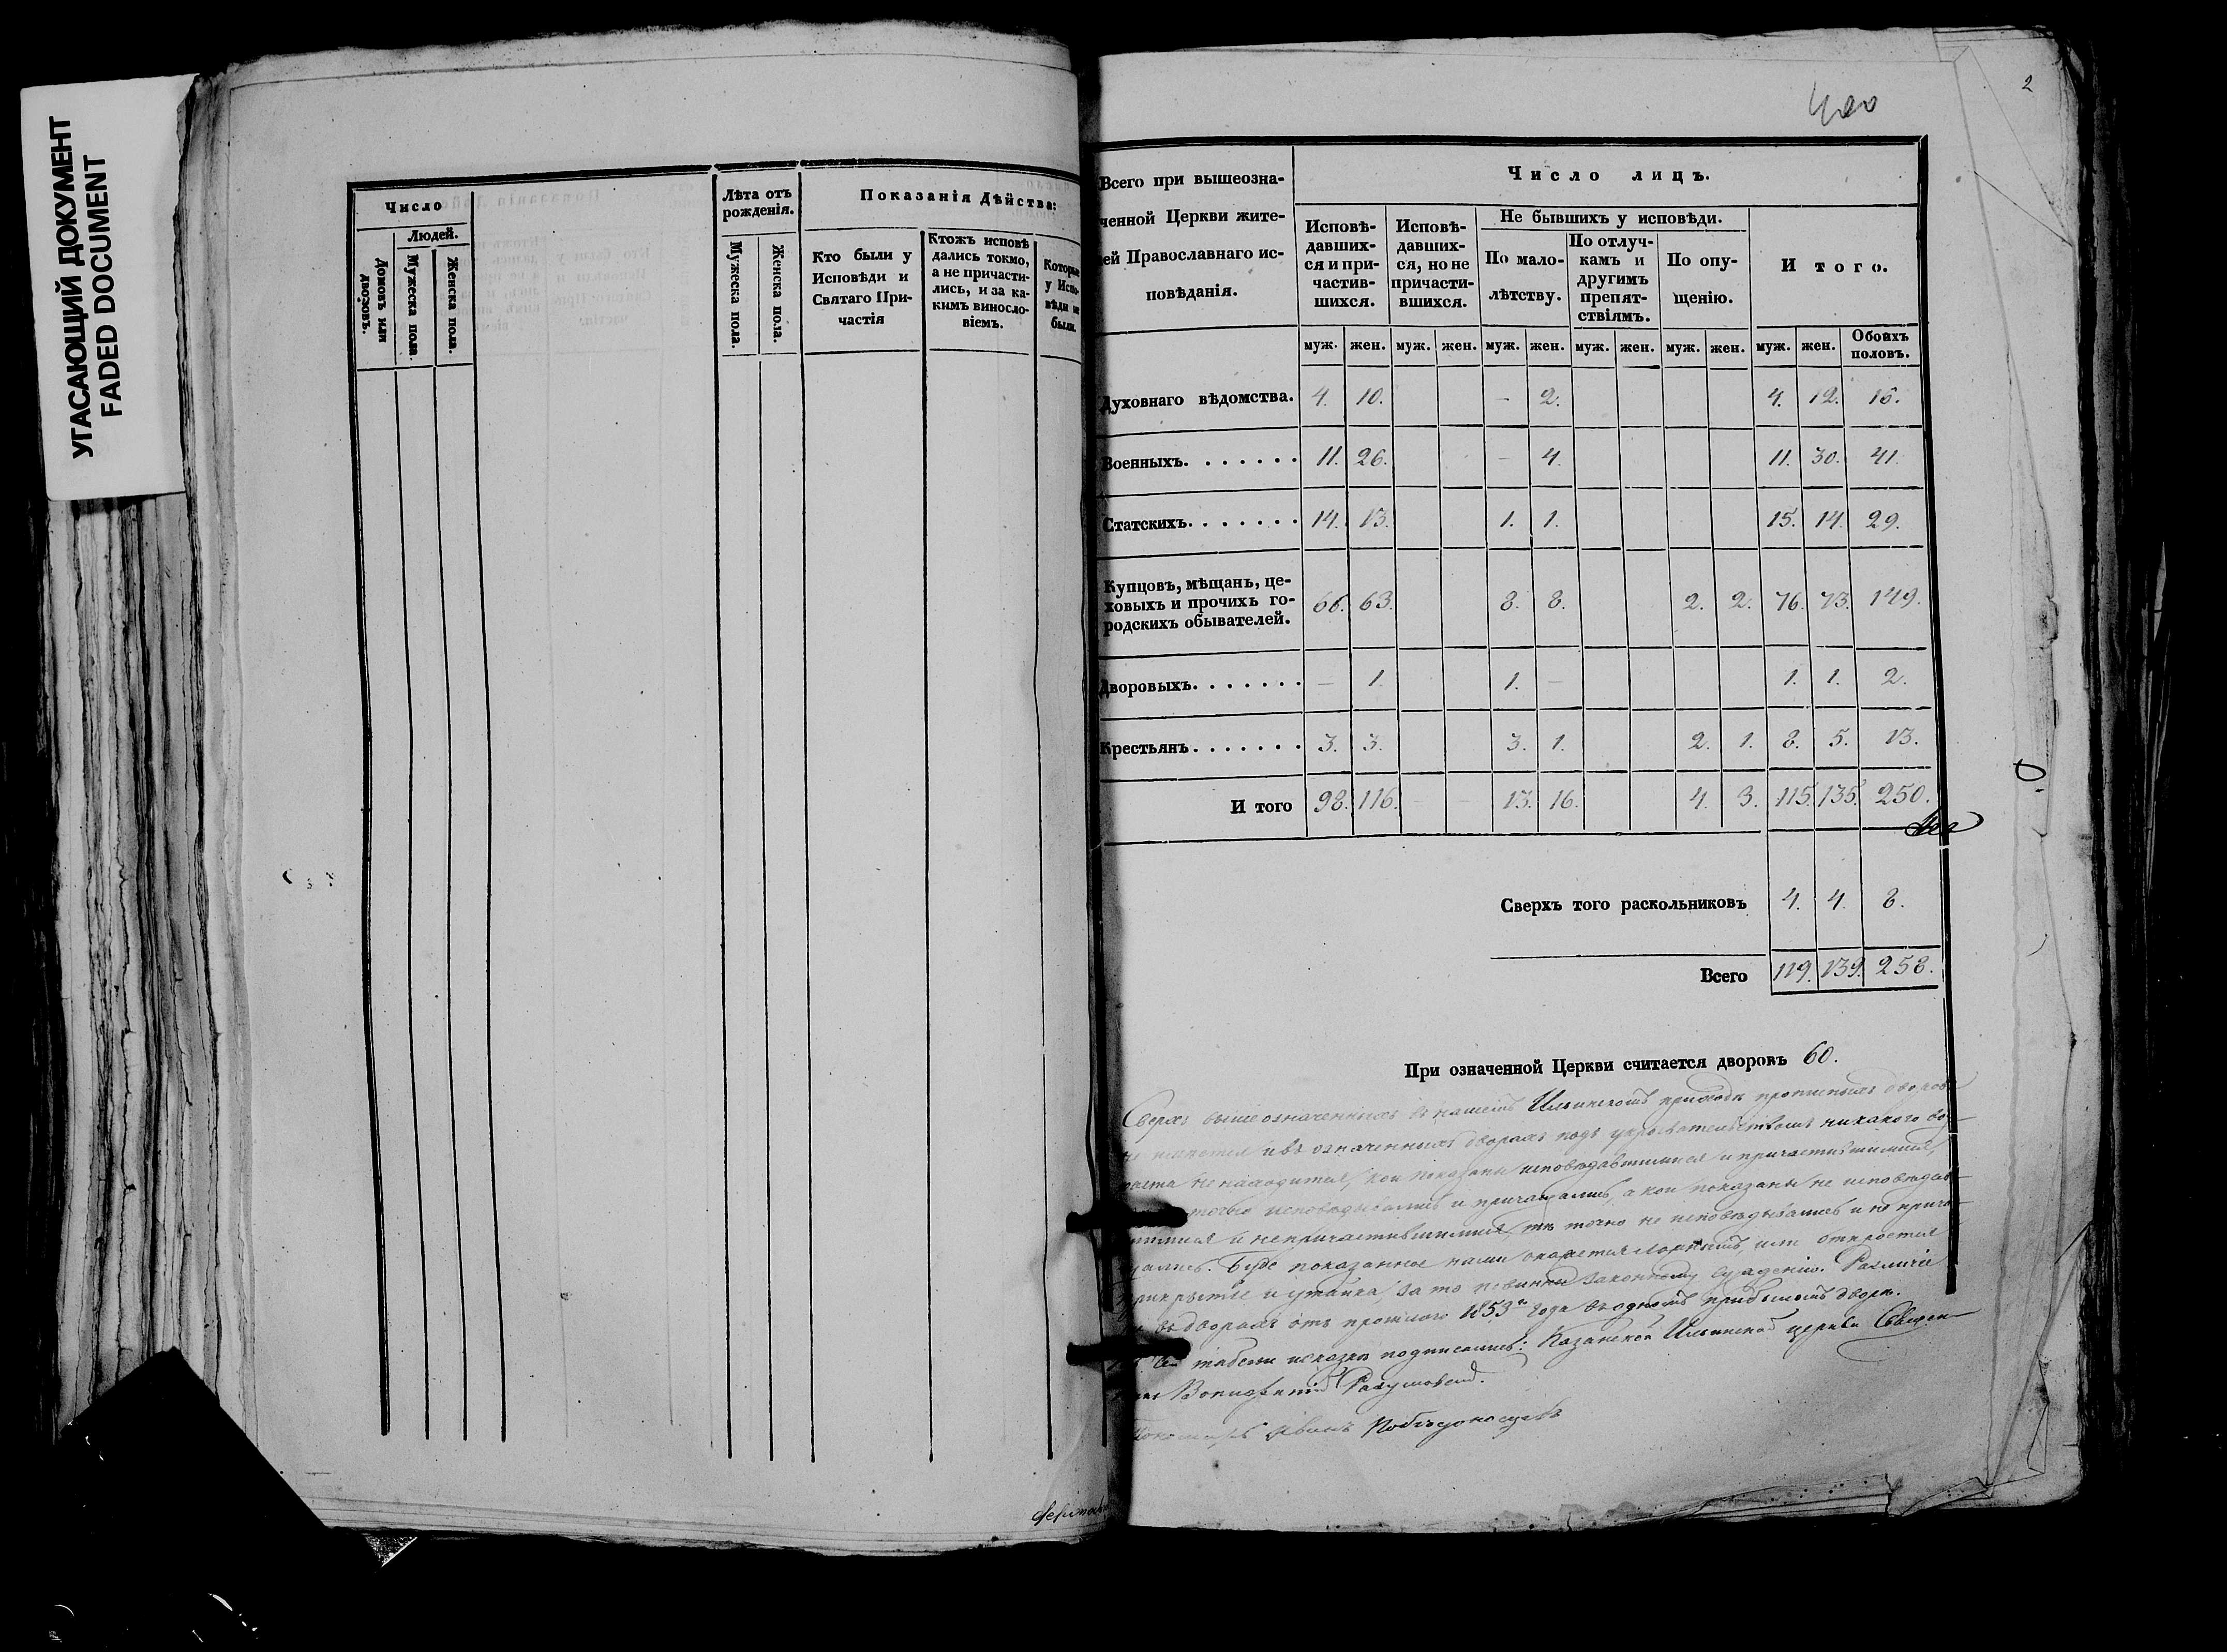 УГАСАЮЩИЙ ДОКУМЕНТ
FADED DOCUMENT
Число
Домовъ или дворовъ.
Людей.
Мужеска пола.
Женска пола.
Лѣта отъ
рожденія.
Мужеска пола.
Женска пола.
Показанія Дѣйства:
Кто были у
Исповѣди и
Святаго При-
частія
Ктожъ исповѣ
дались токмо,
а не причасти-
лись, и за ка-
кимъ винносло-
віемъ.
Которые
у Испо-
вѣди не
были.
2
400
Всего при вышеозна-
ченной Церкви жите-
лей Православнаго ис-
повѣданія.
Число лицъ.
Исповѣ-
давших-
ся и при-
частив-
шихся.
Исповѣ-
давших-
ся, но не
причасти-
вшихся.
Не бывшихъ у исповѣди.
По мало-
лѣтству.
По отлуч-
камъ и
другимъ
препят-
ствіямъ.
По опу-
щенію.
И того.
муж. жен. муж. жен. муж. жен. муж. жен. муж. жен. муж. жен. Обоихъ
половъ.
Духовнаго вѣдомства. 4. 10. – 2. 4. 12. 16.
Военныхъ. . . . . . . 11. 26. – 4. 11. 30. 41.
Статскихъ. . . . . . . 14. 13. 1. 1. 15. 14. 29.
Купцовъ, мѣщанъ, це-
ховыхъ и прочихъ го-
родскихъ обывателей. 66. 63. 8. 8. 2. 2. 76. 73. 149.
Дворовыхъ. . . . . . . – 1. 1. – 1. 1. 2.
Крестьянъ. . . . . . . 3. 3. 3. 1. 2. 1. 8. 5. 13.
И того 98. 116. – – 13. 16. 4. 3. 115. 135. 250.
Сверхъ того раскольниковъ 4. 4. 8.
Всего 119. 139. 258.
При означенной Церкви считается дворовъ 60.
Сверхъ вышеозначенныхъ въ нашемъ Ильинскомъ приходѣ прописныхъ дворовъ
не имѣется и въ означенныхъ дворахъ подъ укрывательствомъ никакого во-
раста не находится, кои показаны исповѣдавшимися и причастившимися,
точно исповѣдывались и причащались, а кои показаны не исповѣдав-
шимися и непричастившимися, тѣ точно не исповѣдывались и не прича-
щались. Буде показанное нами окажется ложнымъ, или откроется
прикрытіе и утайка, за то повинны законному сужденію. Различіе
въ дворахъ отъ прошлаго 1853го года въ одномъ прибыломъ дворѣ.
подписались: Казанской Ильинской церкви Священ-
Разумовскій.
Иванъ Побѣдоносцевъ